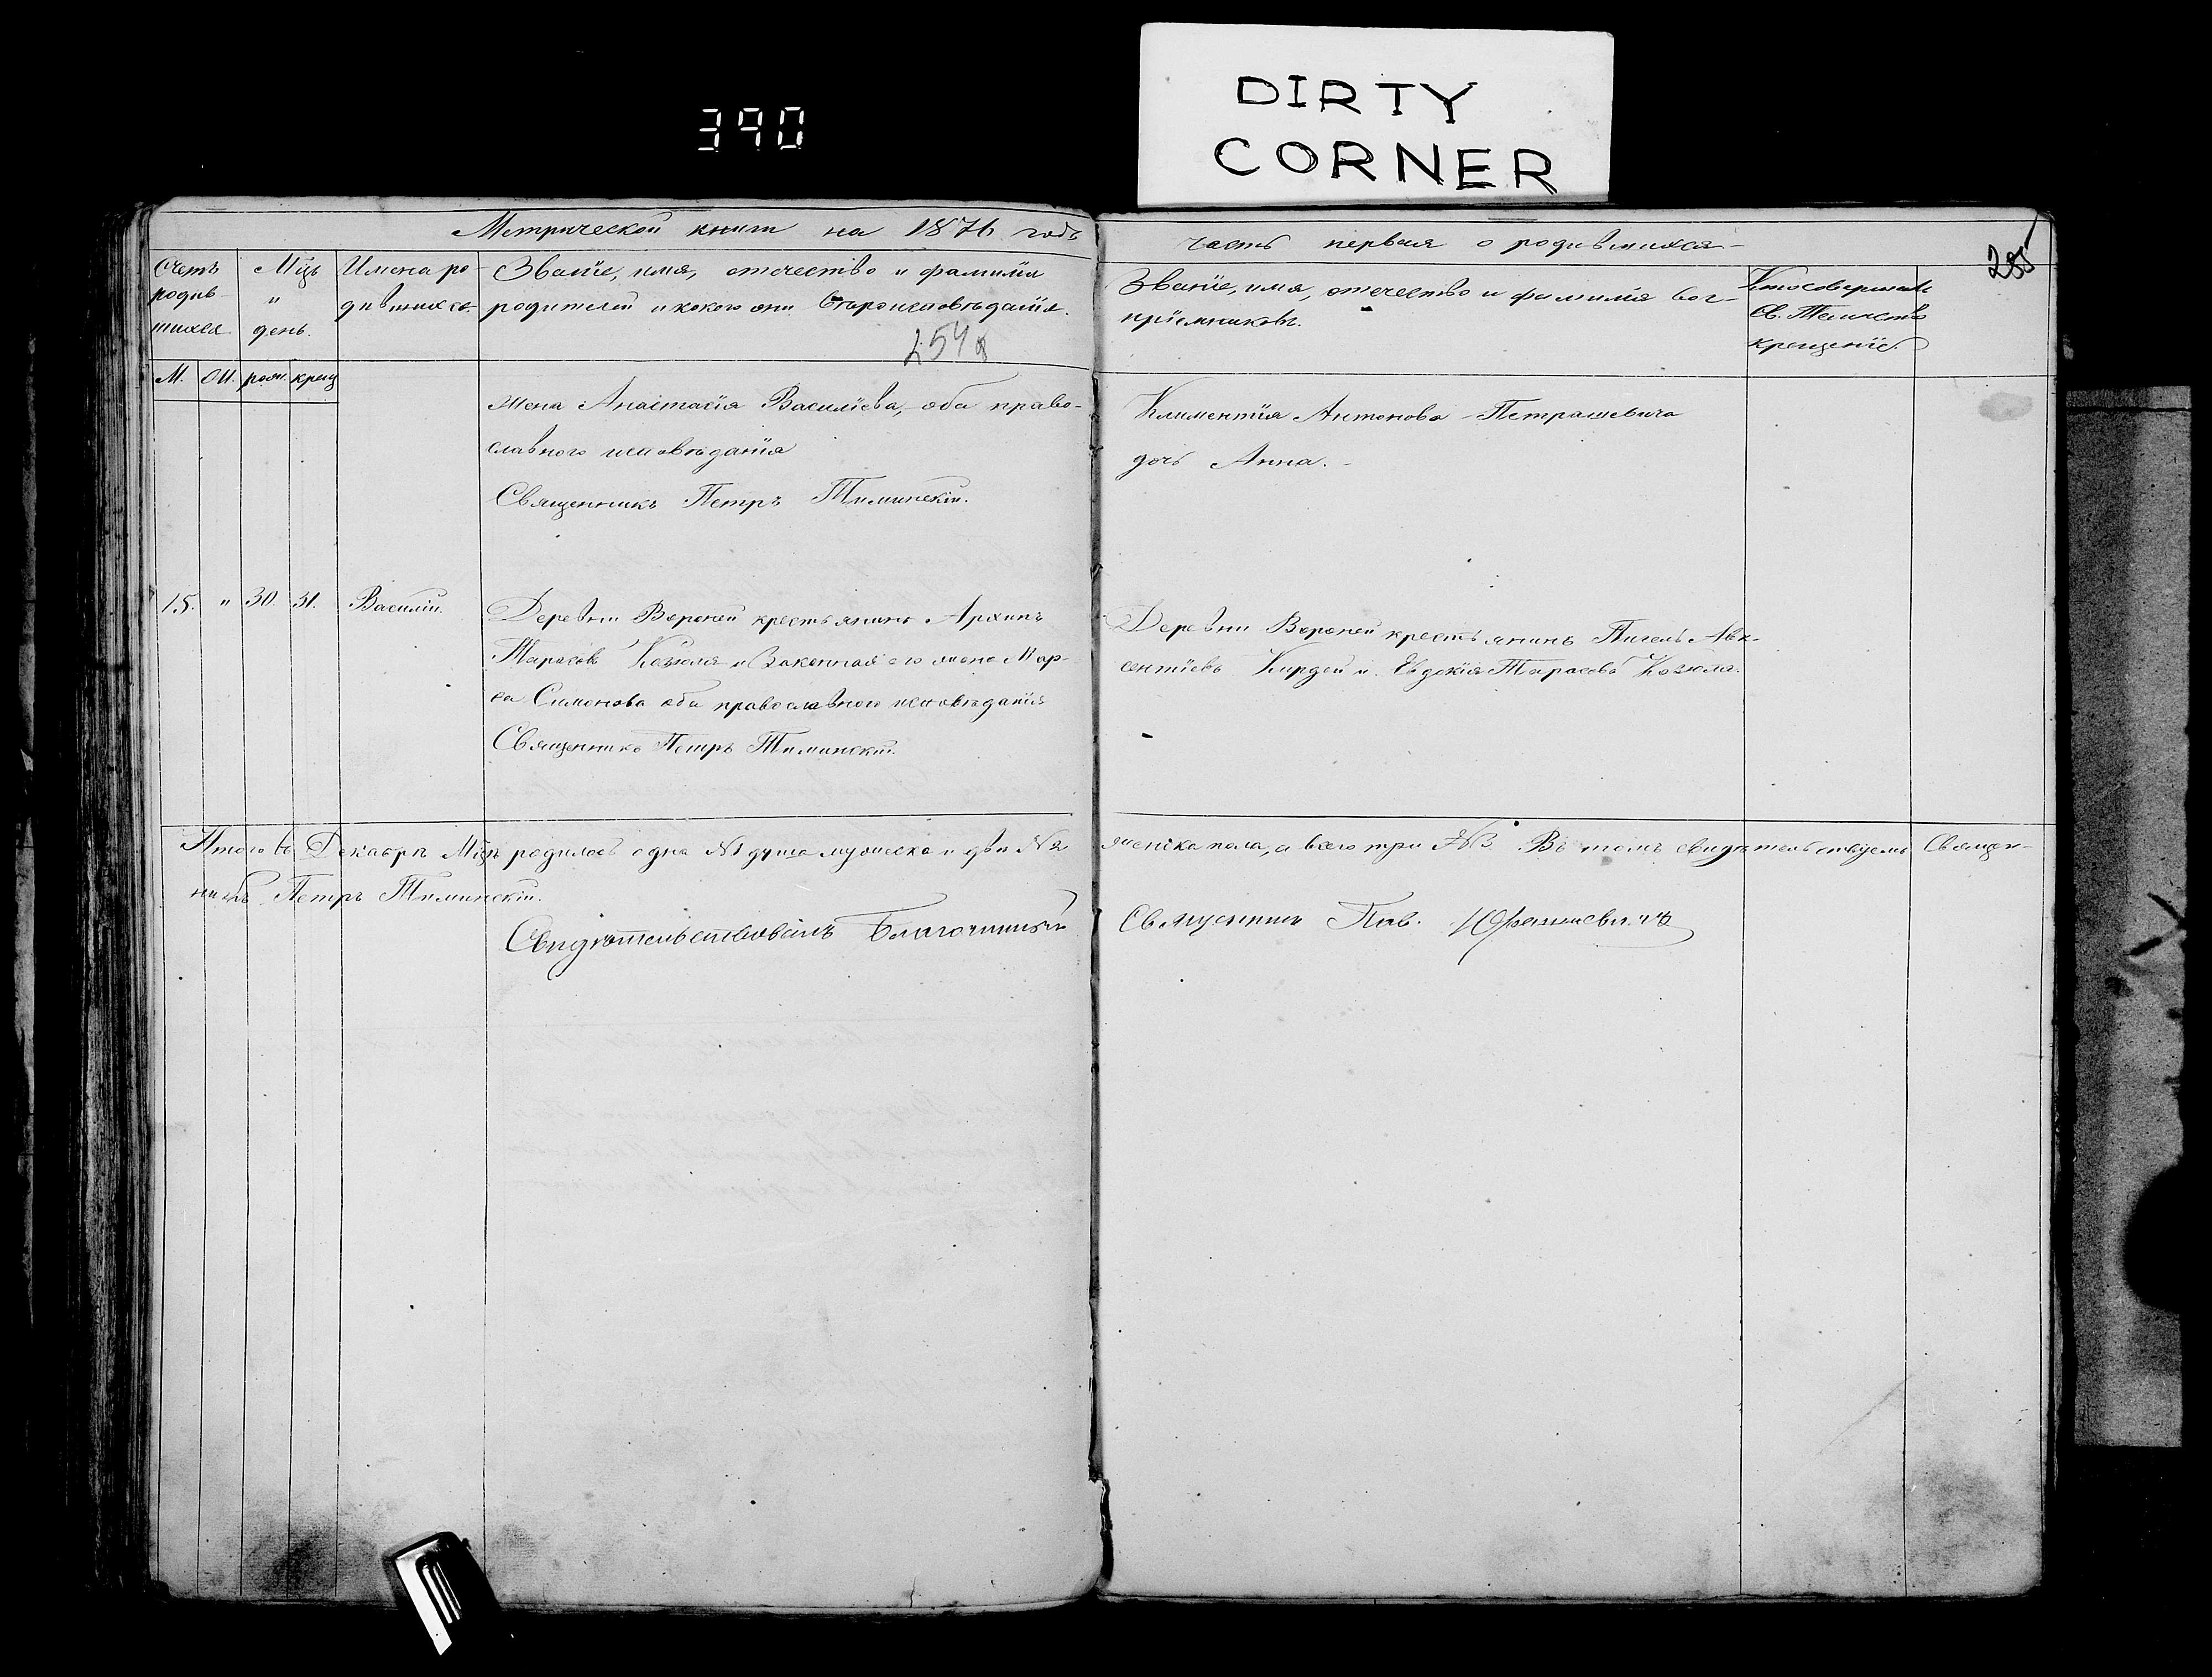 390
DIRTY
CORNER
Метрической книги на 1876 годъ
часть первая о родившихся
285
Счетъ родив-шихся
Мцъ и день.
Имена ро-дившихся.
Званіе, имя, отечество и фамилія
родителей и какого они вѣроисповѣданія.
254
Званіе, имя, отечество и фамилія вос-
пріемниковъ.
Кто совершалъ
Св. Таинство
крещенія.
М. Ж. рож. крещ
жена Анастасія Василіева, оба право-
славного исповѣданія
Священникъ Петръ Тиминскій.
Климентія Антонова Петрашевича
дочь Анна.
15. " 30. 31. Василій.
Деревни Вороней крестьянинъ Архипъ
Тарасовъ Козюля и законная его жена Мар-
ѳа Симонова оба православного исповѣданія
Священникъ Петръ Тиминскій.
Деревни Вороней крестьянинъ Авк-
сентіевъ Кирдей и Евдокія Тарасова Козюля.
Итого въ Декабрѣ Мцѣ родилось одна №1 душа мужеска и двѣ №2
женска пола, а всего три №3. Въ томъ свидѣтельствуемъ Священ-
никъ Петръ Тиминскій.
Свидѣтельствовалъ Благочинный
Священникъ Пав. Юрашкевичъ